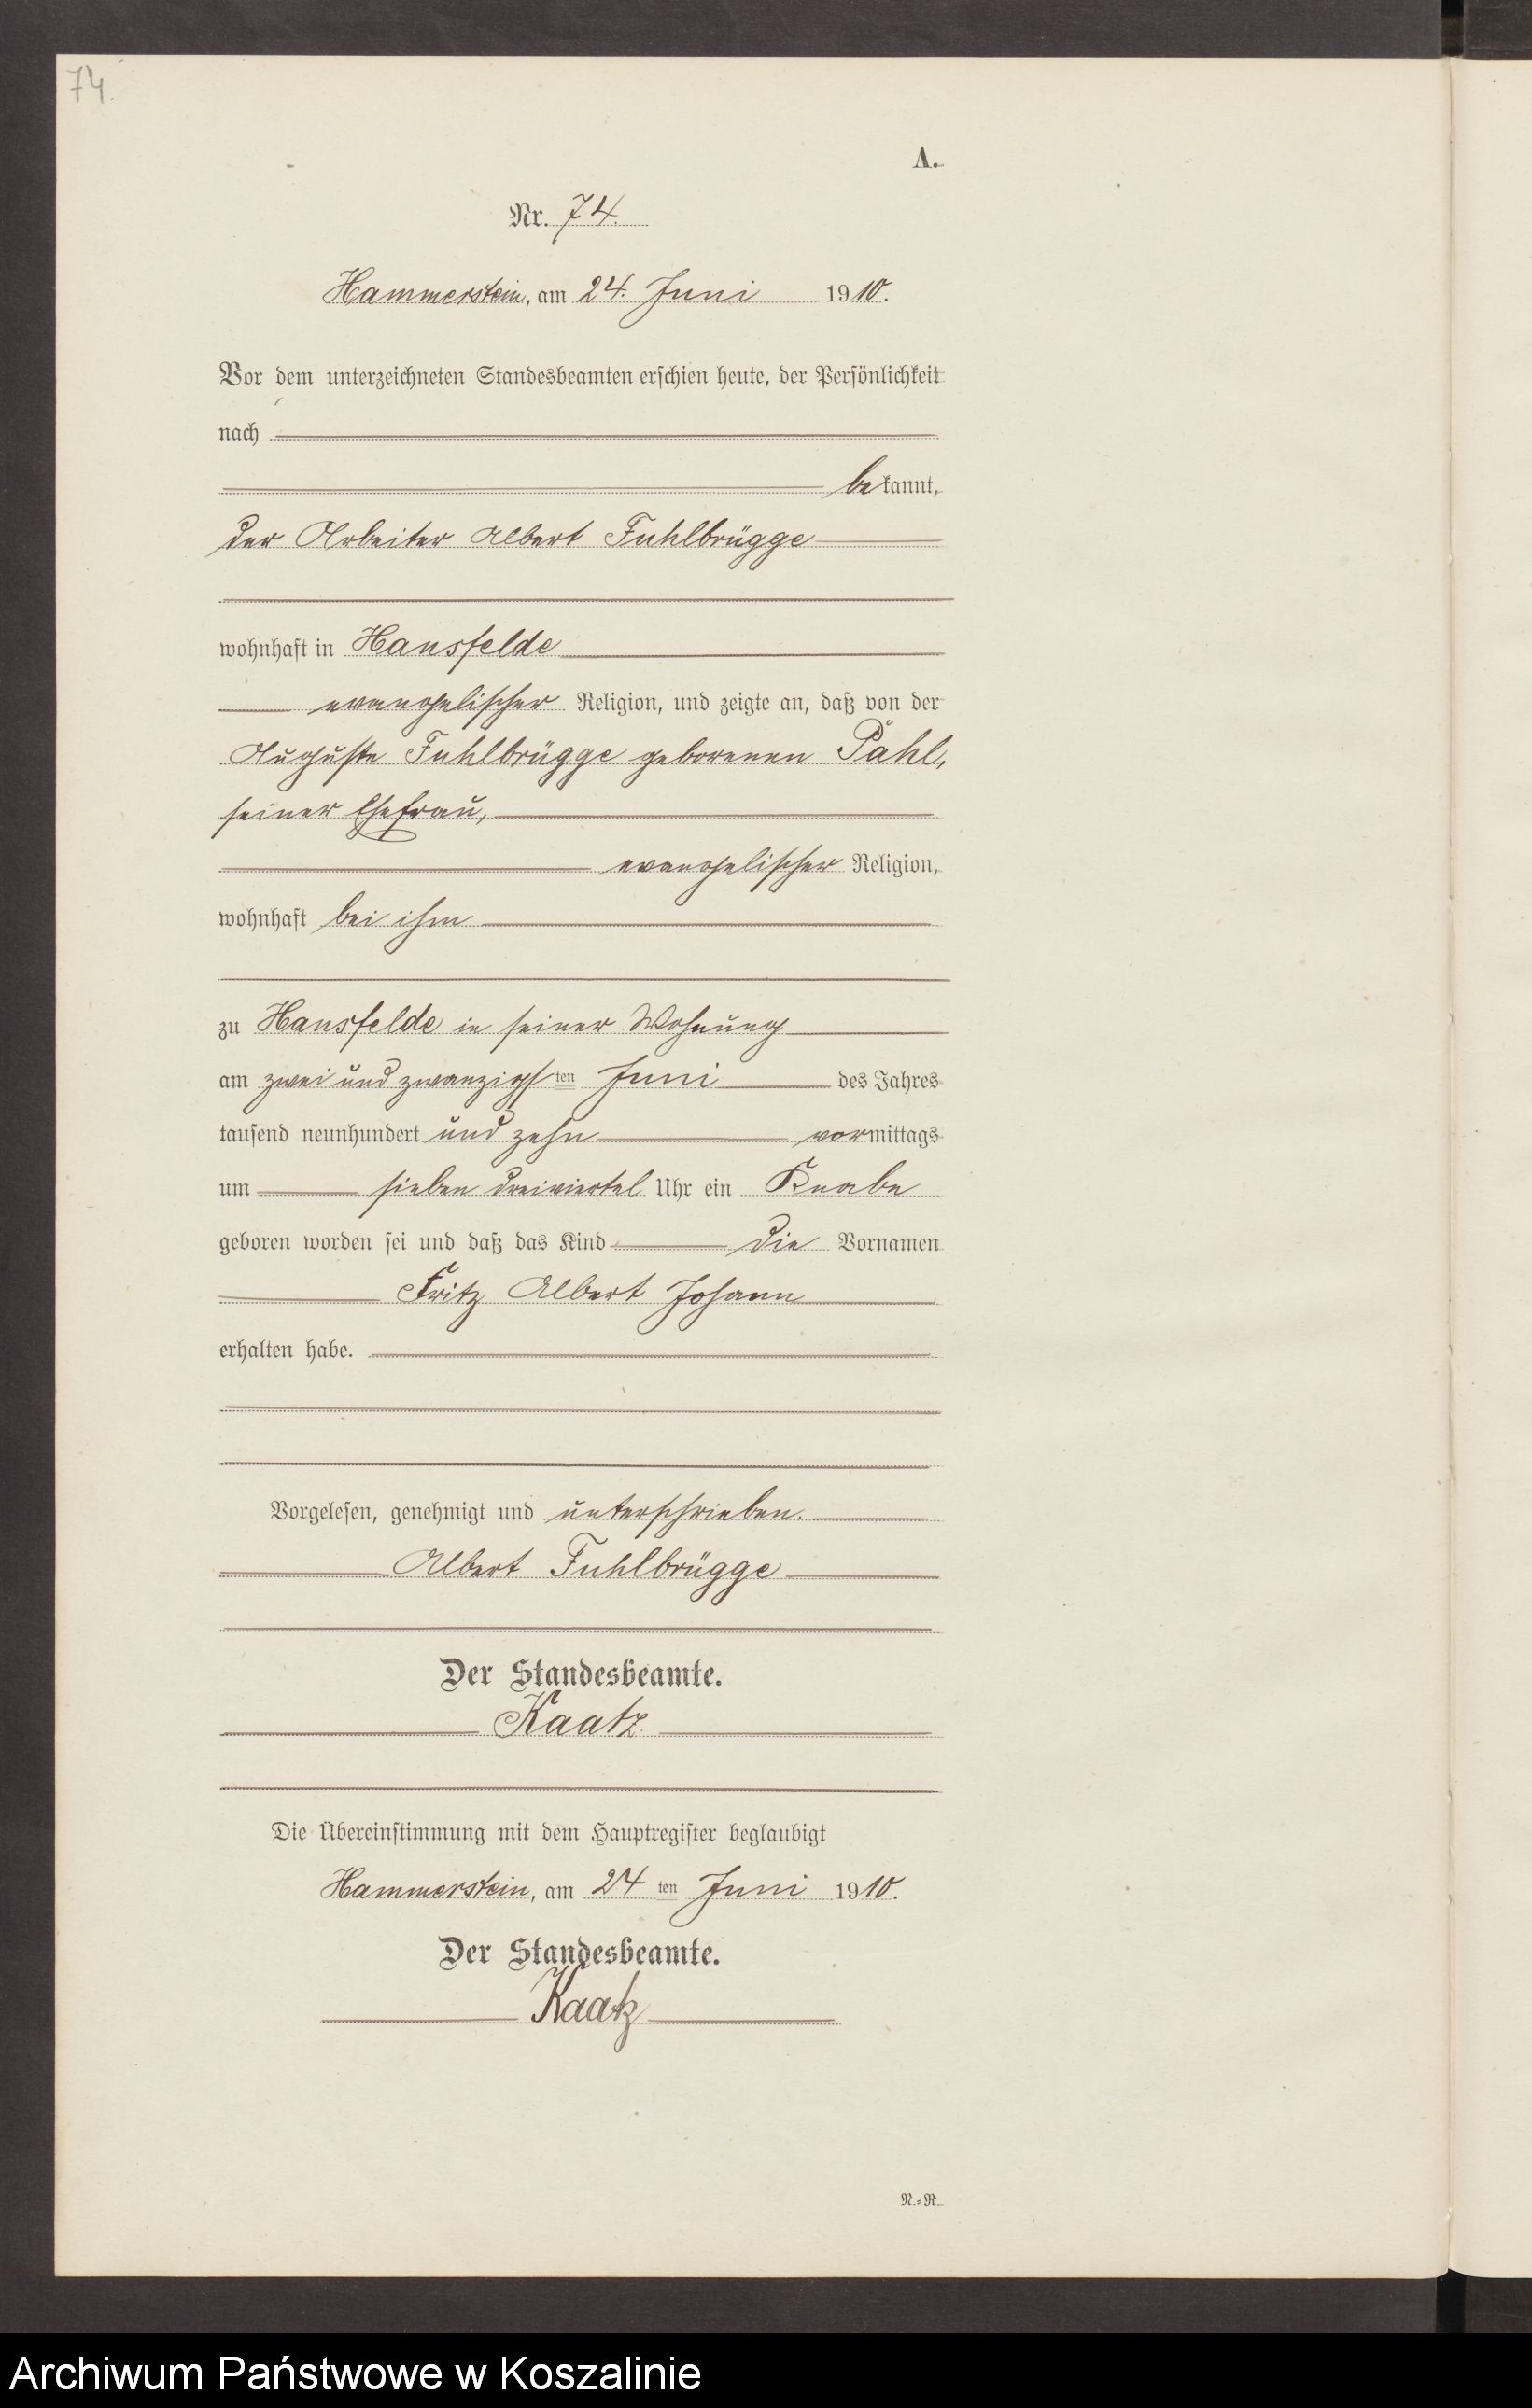 74.
A.
Nr. 74.
Hammerstein, am 24. Juni 1910.
Vor dem unterzeichneten Standesbeamten erschien heute, der Persönlichkeit
nach
bekannt,
der Arbeiter Albert Fuhlbrügge
wohnhaft in Hansfelde
evangelischer Religion, und zeigte an, daß von der
Auguste Fuhlbrügge geborenen Pahl,
seiner Ehefrau,
evangelischer Religion,
wohnhaft bei ihm
zu Hansfelde in seiner Wohnung
am zwei und zwanzigsten Juni des Jahres
tausend neunhundert und zehn vormittags
um sieben dreiviertel Uhr ein Knabe
geboren worden sei und daß das Kind die Vornamen
Fritz Albert Johann
erhalten habe.
Vorgelesen, genehmigt und unterschrieben.
Albert Fuhlbrügge
Der Standesbeamte.
Kaatz
Die Übereinstimmung mit dem Hauptregister beglaubigt
Hammerstein, am 24ten Juni 1910.
Der Standesbeamte.
Kaatz
N.=R.
Archiwum Państwowe w Koszalinie